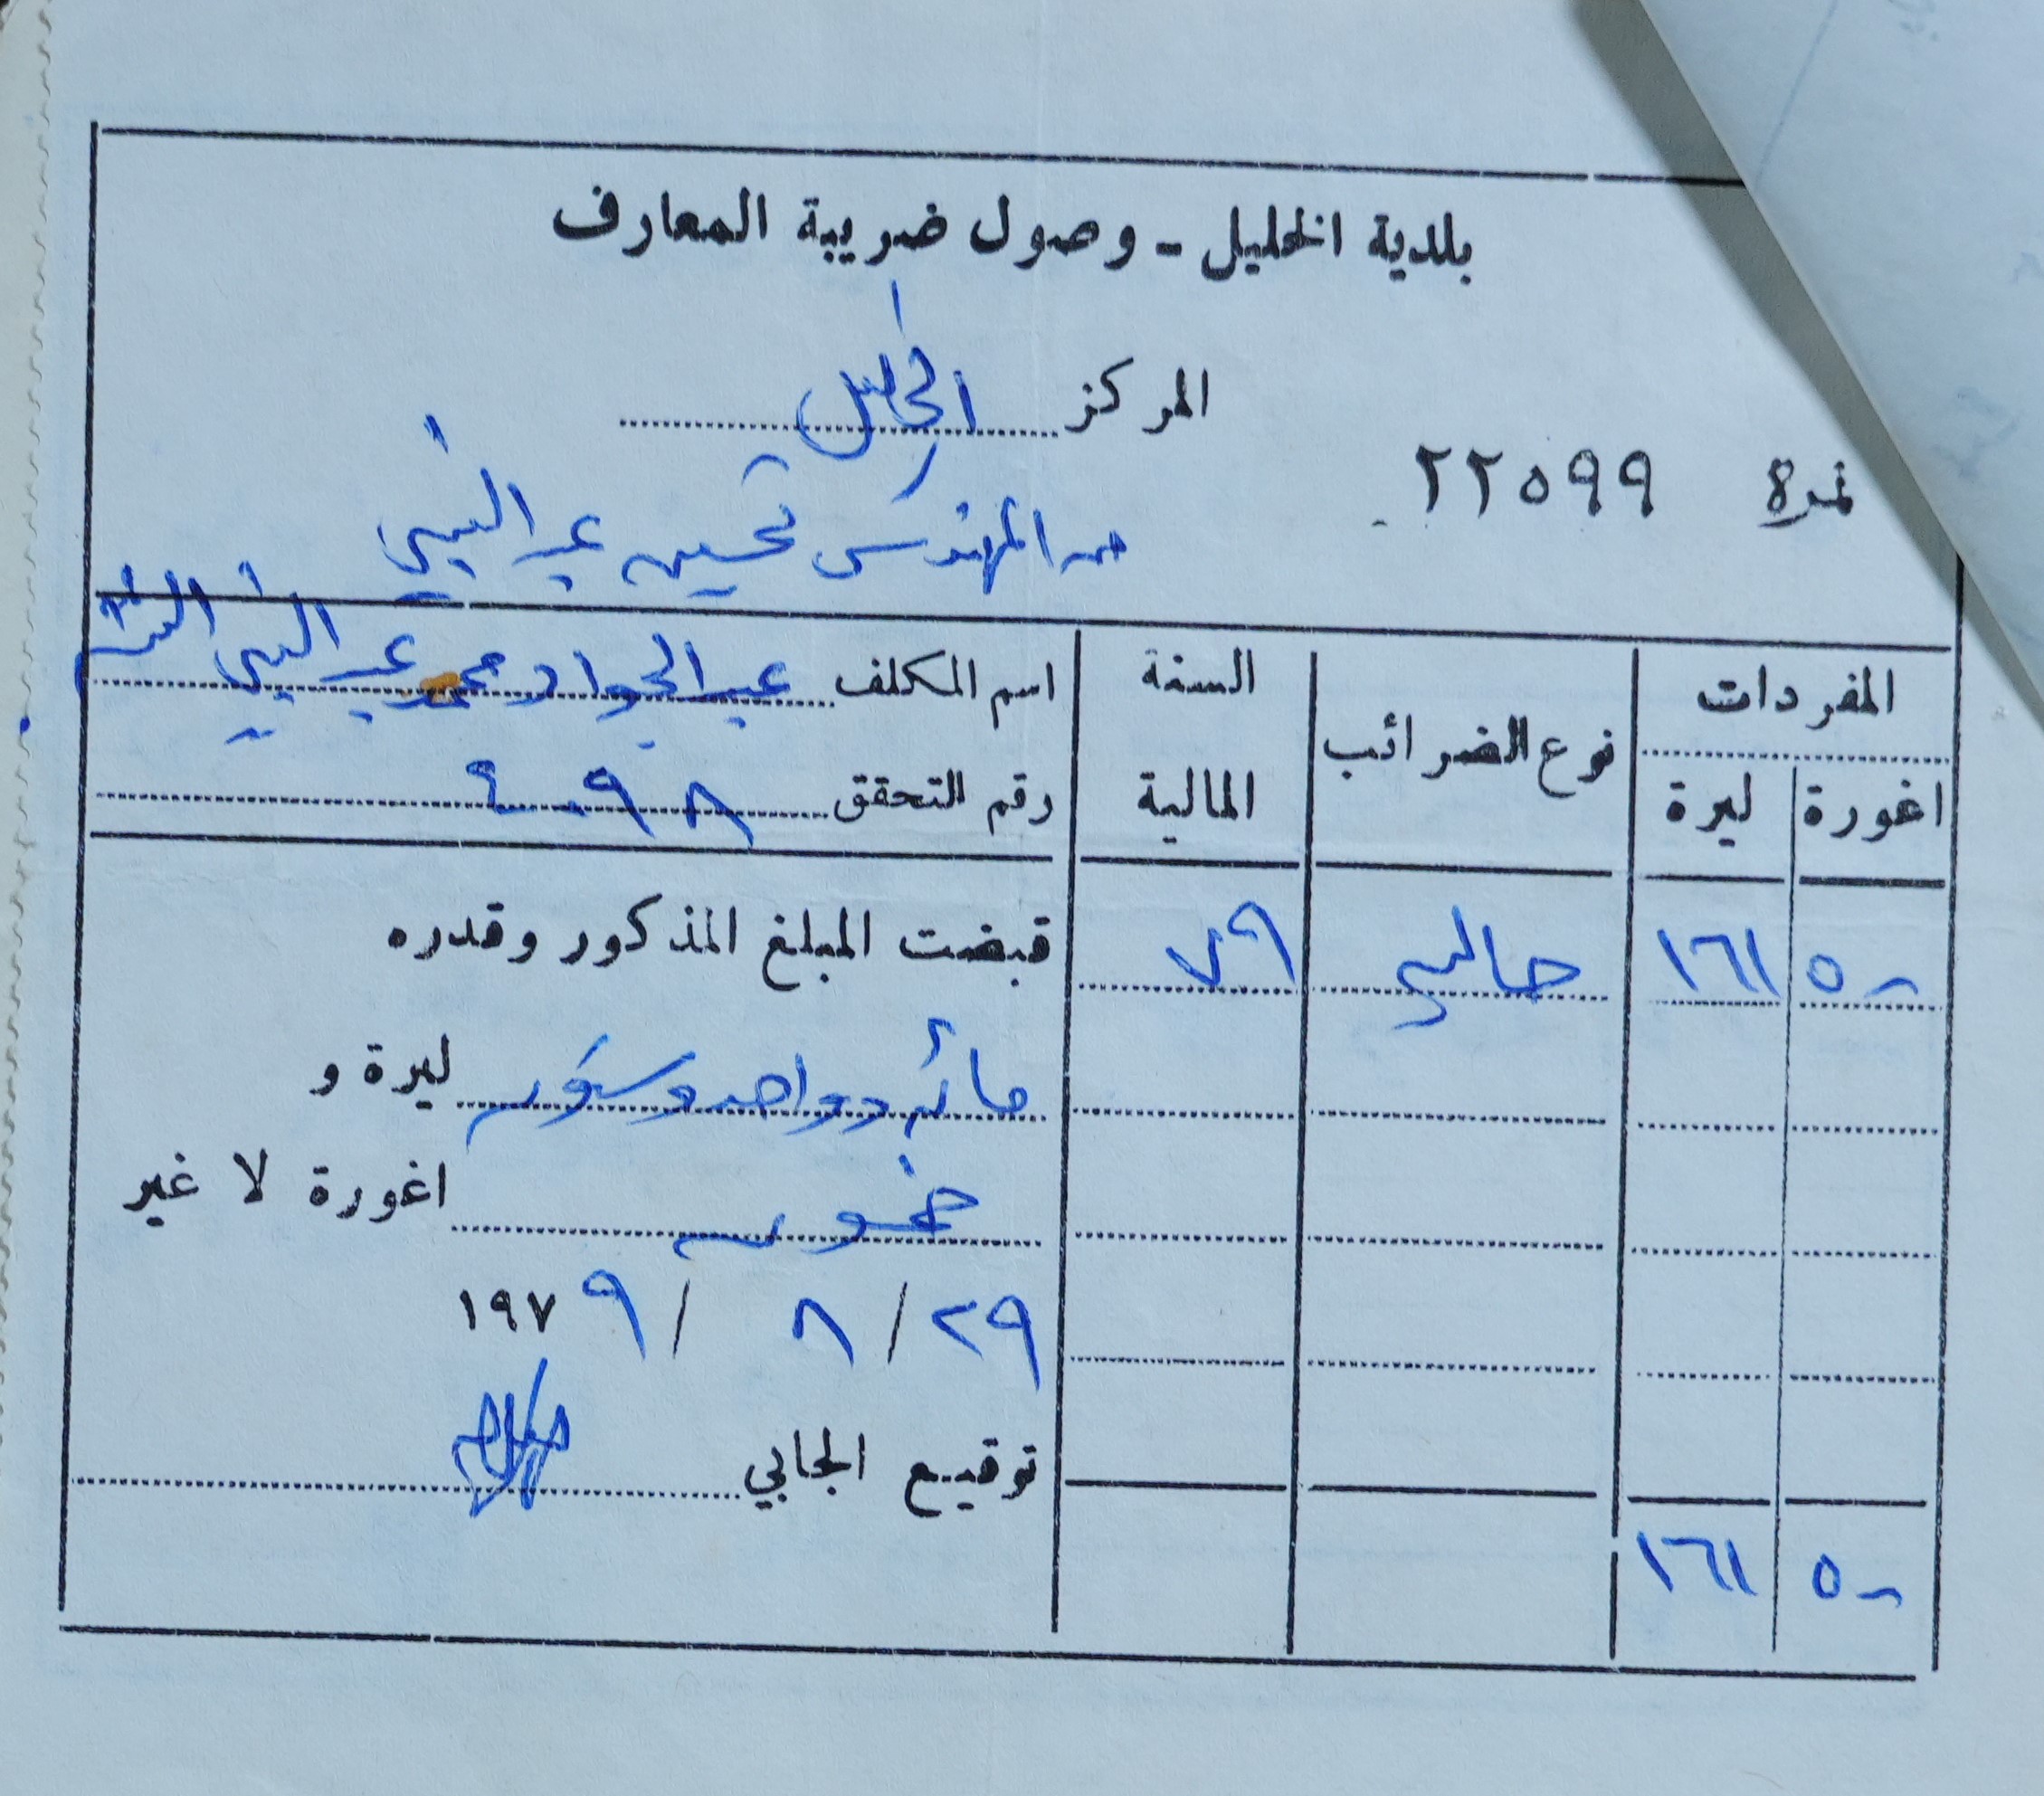 بلدية الخليل - وصول ضريبة المعارف
المركز الخليل
نمرة ٢٢٥٩٩
من المهندس تحسين عبد النبي
المفردات
اغورة ليرة
نوع الضرائب
السنة المالية
اسم المكلف عبد الجواد محمد عبد النبي النتشه
رقم التحقق ٤٠٩٨
٥٠ ١٦١ حالي ٧٩
قبضت المبلغ المذكور وقدره
مائة وواحد وستون ليرة و
خمسون اغورة لا غير
٢٩ / ٨ / ١٩٧٩
توقيع الجابي
٥٠ ١٦١